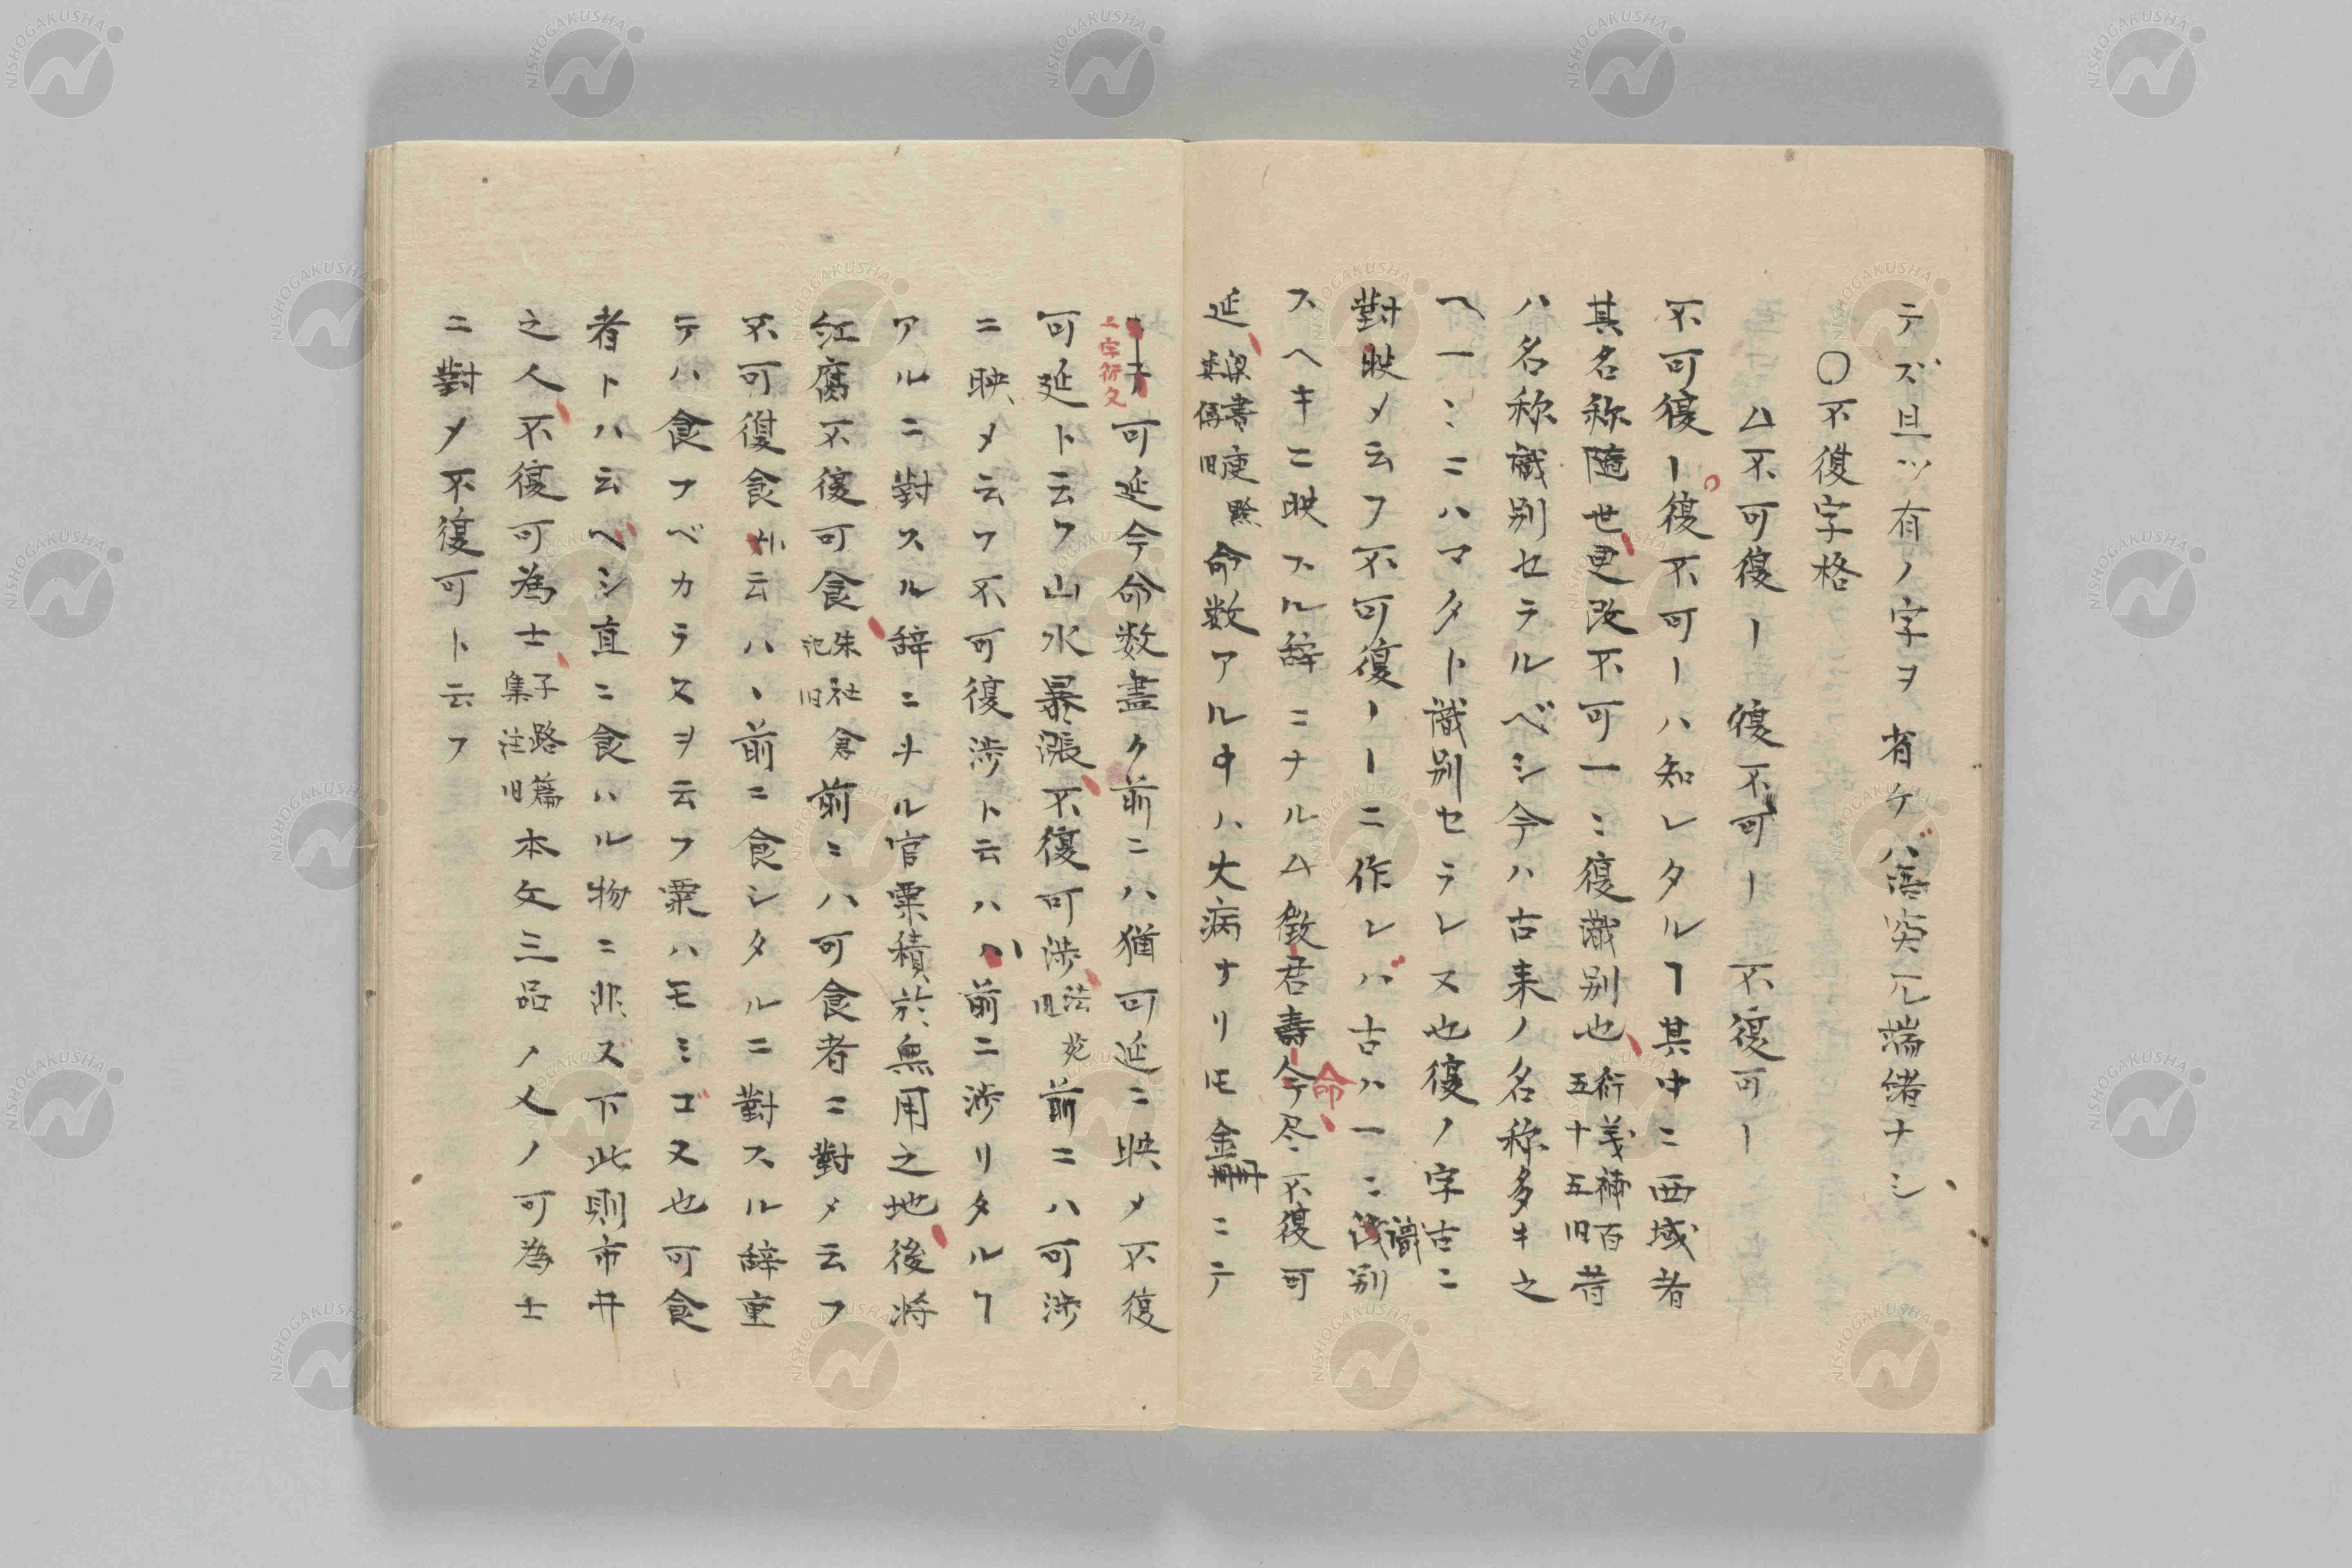 テズ旦ツ有ノ字ヲ省ケバ語突兀端緒ナシ
〇不復字格
ム不可復ー 復不可ー 不復可ー
不可復ー復不可ーハ知レタルヿ其中ニ西域者
其名称随世更改不可一〻復識別也衍義補百五十五旧昔
ハ名称識別セラルベシ今ハ古来ノ名称多キ之
ヘ一〻ニハマタト識別セラレヌ也復ノ字古ニ
對映メ云フ不可復ーーニ作レバ古ハ一〻識別
スヘキニ映スル辞ニナルム徴君壽命尽不復可
延梁書庾黔婁傳旧命数アル中ハ大病ナリモ金冊ニテ
二字衍文
可延今命数盡ク前ニハ猶可延ニ映メ不復
可延ト云フ山水暴漲不復可渉法苑旧前ニハ可渉
ニ映メ云フ不可復渉ト云ハハ前ニ渉リタルヿ
アルニ對スル辞ニナル官粟積於無用之地後将
紅腐不復可食朱社倉記旧前ニハ可食者ニ對メ云フ
不可復食ト云ハヽ前ニ食シタルニ對スル辞重
テハ食フベカラヌヲ云フ粟ハモミゴヌ也可食
者トハ云ベシ直ニ食ハル物ニ非ヌ下此則市井
之人不復可為士子路篇集注旧本文三品ノ人ノ可為士
ニ對メ不復可ト云フ